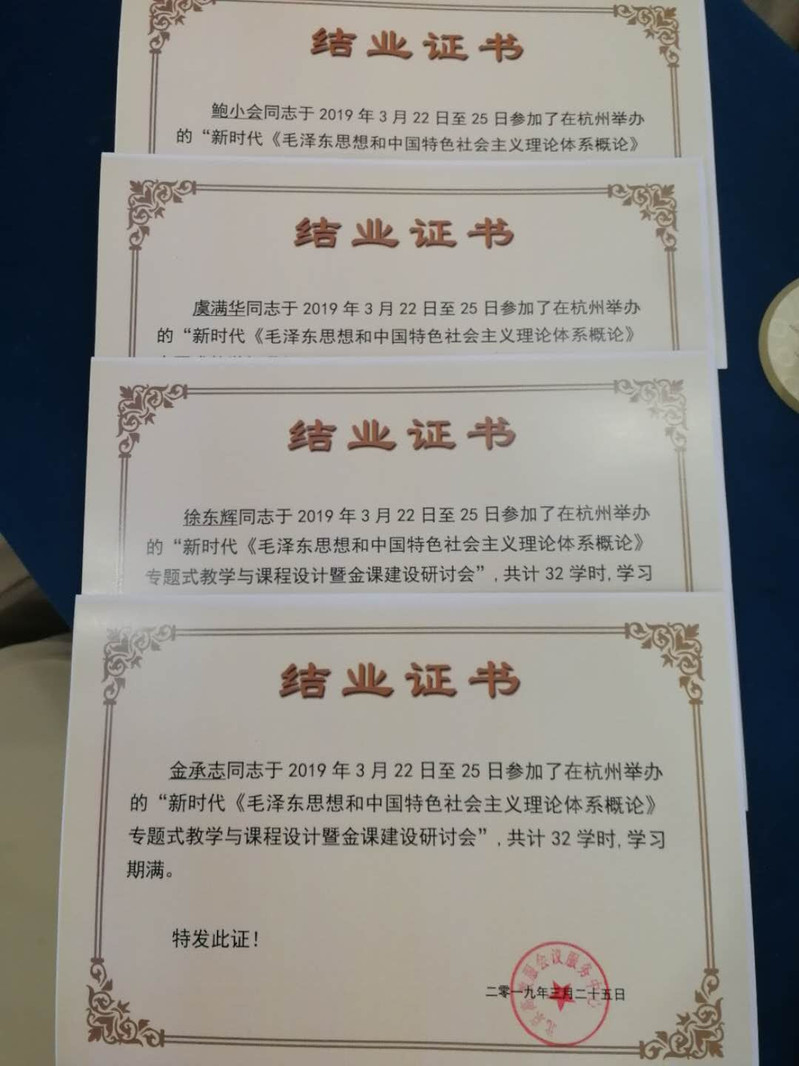 结业证书
鲍小会同志于 2019 年 3 月 22 日至 25 日参加了在杭州举办
的“新时代《毛泽东思想和中国特色社会主义理论体系概论》
结业证书
虞满华同志于 2019 年 3 月 22 日至 25 日参加了在杭州举办
的“新时代《毛泽东思想和中国特色社会主义理论体系概论》
结业证书
徐东辉同志于 2019 年 3 月 22 日至 25 日参加了在杭州举办
的“新时代《毛泽东思想和中国特色社会主义理论体系概论》
专题式教学与课程设计暨金课建设研讨会”,共计 32 学时,学习
结业证书
金承志同志于 2019 年 3 月 22 日至 25 日参加了在杭州举办
的“新时代《毛泽东思想和中国特色社会主义理论体系概论》
专题式教学与课程设计暨金课建设研讨会”,共计 32 学时,学习
期满。
特发此证!
二零一九年三月二十五日
会议服务中心